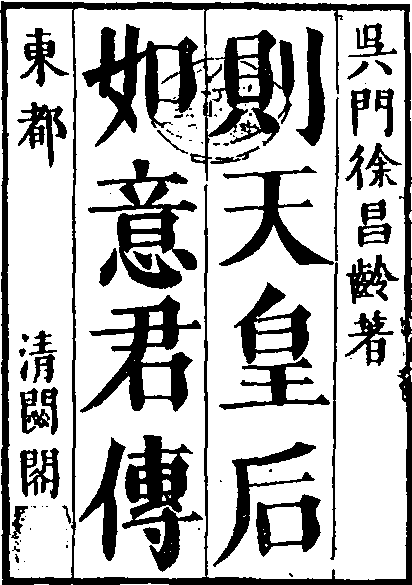 吳門徐昌齡著
則天皇后
如意君傳
東都 清閟閣